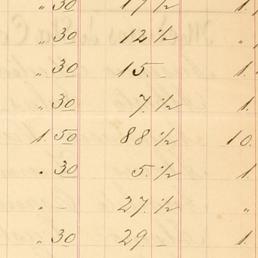 „ 30 17 ½ 1.
„ 30 12 ½ „
„ 30 15. – 1.
„ 30 7. ½ 1.
1. 50 88 ½ 10.
„ 30 5. ½ 1.
„ – 27. ½ „
„ 30 29 – 1.